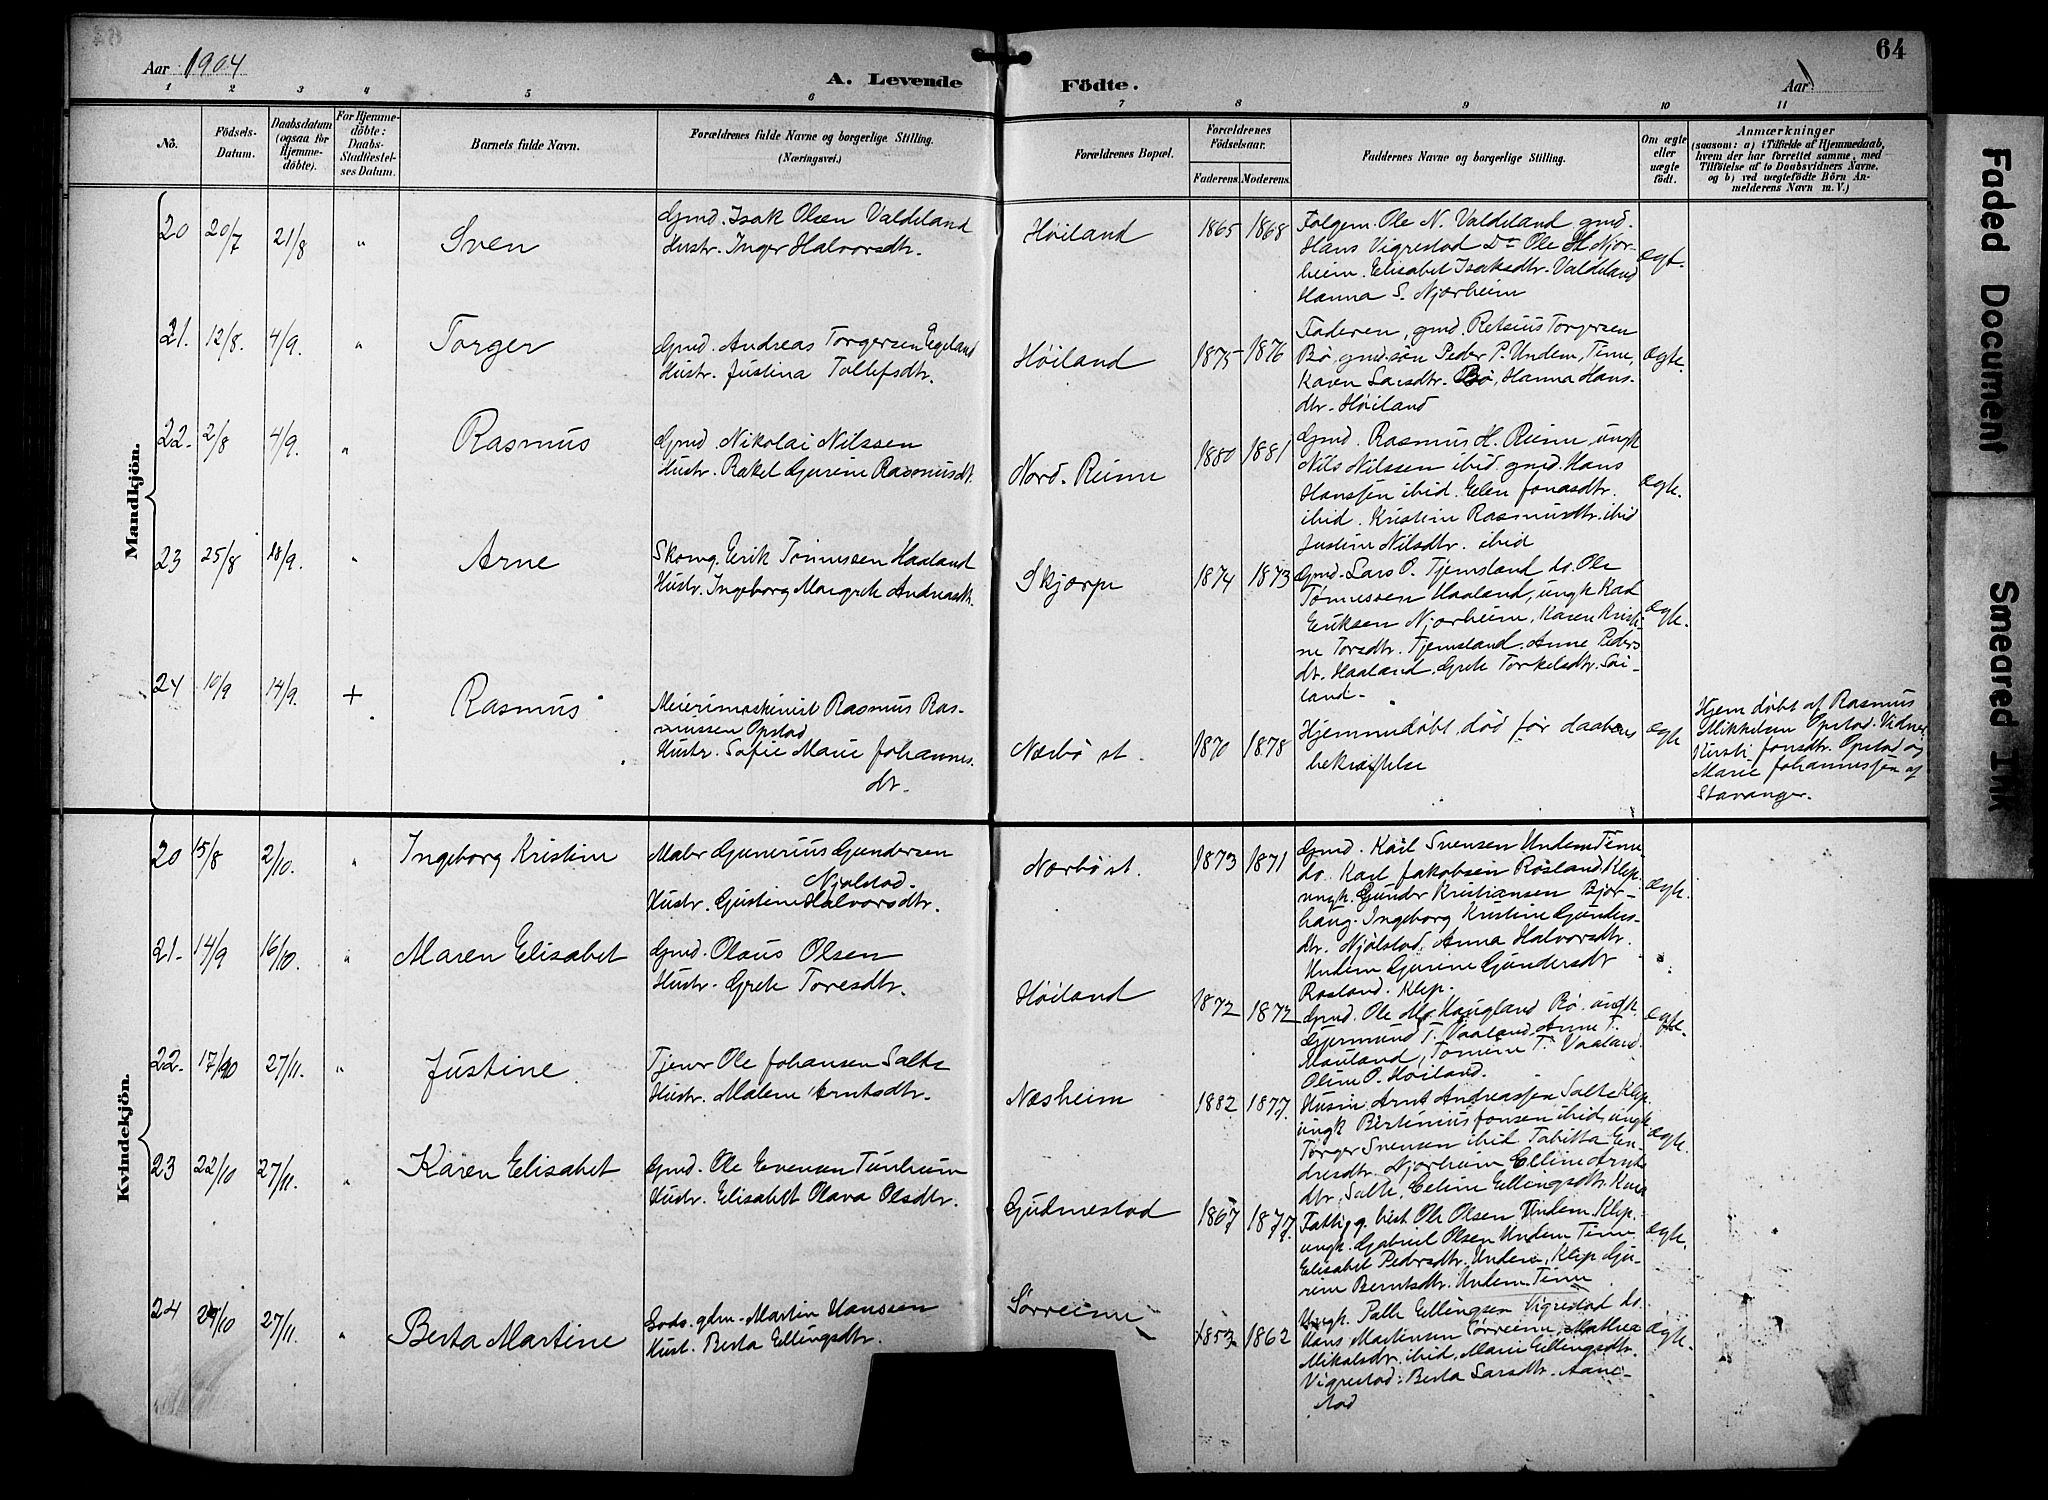 64
Aar 1904
A. Levende Födte.
Aar
1 2 3 4 5 6 7 8 9 10 11
Nö.
Födsels-Datum.
Daabsdatum (ogsaa for Hjemmedöbte).
For Hjemmedöbte: Daabs-Stadfæstelses Datum.
Barnets fulde Navn.
Forældrenes fulde Navne og borgerlige Stilling.
(Næringsvei.)
Forældrenes Bopæl.
Forældrenes Födselsaar.
Faderens. Moderens.
Faddernes Navne og borgerlige Stilling.
Om ægte eller uægte födt.
Anmærkninger
(saasom: a) i Tilfælde af Hjemmedaab, hvem der har forrettet samme, med Tilföielse af to Daabsvidners Navne, og b) ved uægtefödte Börn Anmelderens Navn m. V.)
Mandkjön.
20 20/7 21/8 " Sven
Gmd. Isak Olsen Valdeland
Hustr. Inger Halvorsdtr.
Høiland 1865 1868
Folgem. Ole N. Valdeland gmd.
Hans Vigrestad Do Ole H. Njær-
heim. Elisabet Isaksdtr. Valdeland
Hanna S. Njærheim
ægt.
21. 12/8. 4/9. " Torger
Gmd. Andreas Torgersen Egeland
Hustr. Justina Tollefsdtr.
Høiland 1875 1876
Faderen, gmd. Retsius Torgersen
Bø, gmd.søn Peder P. Undem, Time,
Karen Larsdtr. Bø, Hanna Hans-
dtr. Høiland
ægte.
22. 2/8 4/9. " Rasmus
Gmd. Nikolai Nilssen
Hustr. Rakel Gurine Rasmusdt.
Nord. Reime 1880 1881
Gmd. Rasmus H. Reime, ungk
Nils Nilssen ibid. gmd. Hans
Hanssen ibid. Elen Jonasdtr.
ibid. Kristine Rasmusdtr. ibid
Justine Nilsdtr. ibid
ægte.
23 25/8 18/9. " Arne
Skomg. Erik Tønnessen Haaland
Hustr. Ingeborg Margrete Andreasdt.
Skjærpe 1874 1873
Gmd. Lars O. Tjemsland do. Ole
Tønnessen Haaland, ungk
Eriksen Njærheim, Karen Kristi-
ne Torsdtr. Tjemsland. Anne Peders
dt. Haaland, Grete Torkelsdtr.
land.
ægte.
24 10/9 14/9. + Rasmus
Meierimaskinist Rasmus Ras-
mussen Opstad
Hustr. Sofie Marie Johannes.
dtr.
Nærbø st. 1870 1878
Hjemmedøbt død før daabens
bekræftelse
ægte
Hjemdøbt af Rasmus
Mikkelsen Opstad. Vidner
Kirsti Jonsdtr. Opstad og
Marie Johannessen af
Stavanger.
Kvindekjön.
20 15/8 2/10. " Ingeborg Kristine
Maler Gunerius Gundersen
Njølstad.
Hustr. Gustine Halvorsdtr.
Nærbø st. 1873 1871
Gmd. Karl Svensen Undem Time
do. Karl Jakobsen Røsland, Klep.
ungk. Gunder Kristiansen Bjor-
haug. Ingeborg Kristine Gunders-
dtr. Njølstad. Anna Halvorsdtr.
Undem Gurine Gundersdt
Rosland. Klep.
ægte.
21. 14/9 16/10. " Maren Elisabet
Gmd. Olaus Olsen
Hustr. Grete Toresdtr.
Høiland 1872 1872
Gmd. Ole Haugland Bø. ungk
Gjermund T. Vaaland. Anne T.
Hauland, Tomine T. Vaaland.
Oline O. Høiland.
ægte.
22. 17/10 27/11. " Justine
Tjener Ole Johansen Salte
Hustr. Malene Arntsdtr.
Næsheim 1882 1877.
Husm. Arnt Andreassen Salte Klep.
ungk Bertinius Jonsen ibid, ungk
Torger Svensen ibid Tabitta En-
dresdtr. Njærheim Elline Arnts
dtr, Salte, Celine Ellingsdtr.
ægte.
23 22/10 27/11. " Karen Elisabet
Gmd. Ole Evensen Tunheim
Hustr. Elisabet Olava Olsdtr.
Gudmestad 1867 1877.
Fattigg. best. Ole Olsen Undem. Klep.
ungk. Gabriel Olsen Undem Time
Elisabet Pedersdtr. Undem, Klep Gu-
rine Berntsdtr. Undem. Time
ægte.
24 29/10 27/11. " Berta Martine
Lods. gdm. Martin Hanssen
Hust. Berta Ellingsdtr.
Sørreime 1853 1862
Ungk. Palle Ellingsen Vigrestad do.
Hans Martinsen Sørreime, Mathea
Mikalsdtr. ibid, Marie Ellingsdtr.
Vigrestad. Berta Larsdtr. Aane-
stad
ægte.
Faded Document
Smeared Ink